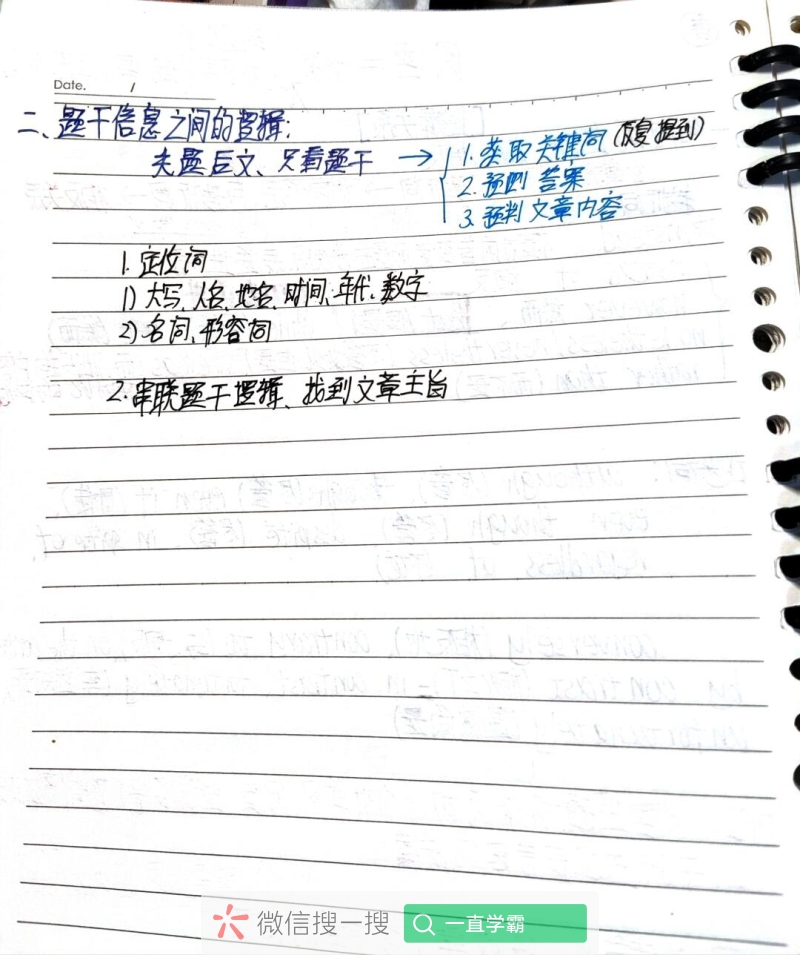 Date. /
二、题干信息之间的逻辑:
先题后文、只看题干 → 1. 获取关键词 (反复提到)
2. 预测答案
3. 预判文章内容
1. 定位词
1) 大写、人名、地名、时间、年代、数字
2) 名词、形容词
2. 串联题干逻辑、找到文章主旨
微信搜一搜 一直学霸